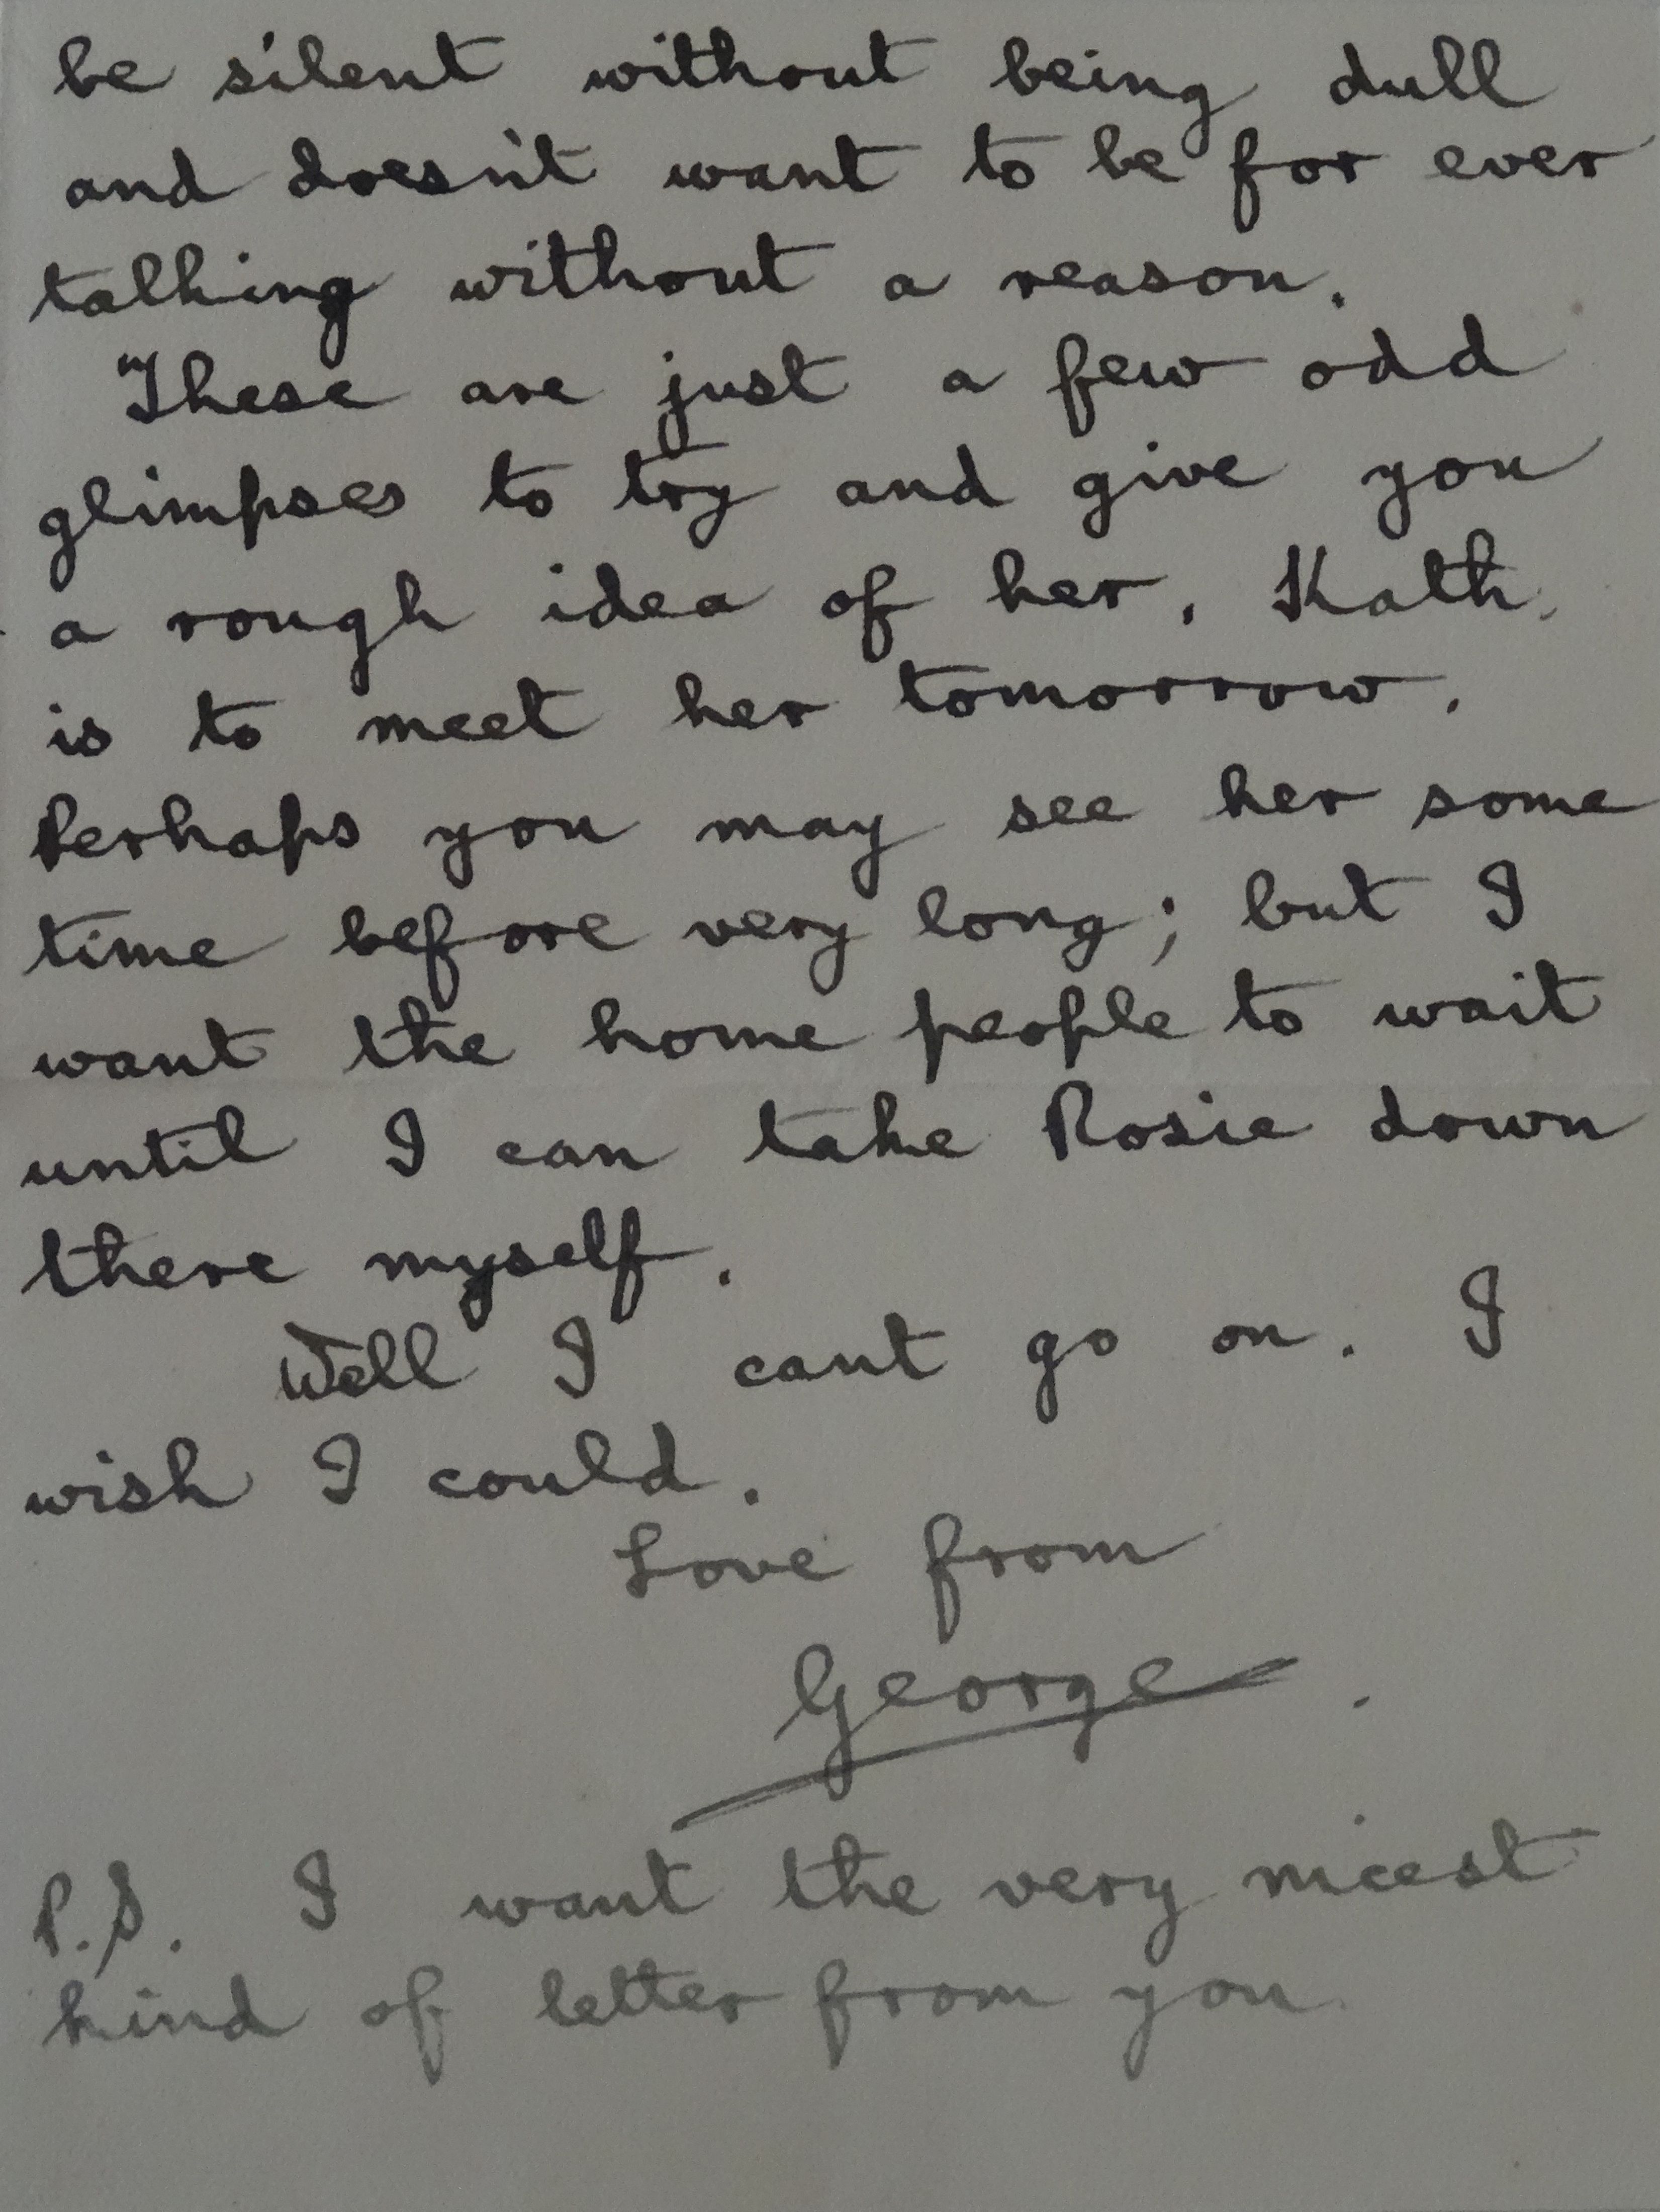 be silent without being dull
and doesn't want to be for ever
talking without a reason.
These are just a few odd
glimpses to try and give you
a rough idea of her. Kath.
is to meet her tomorrow.
Perhaps you may see her some
time before very long; but I
want the home people to wait
until I can take Rosie down
there myself.
Well I cant go on. I
wish I could.
Love from
George.
P.S. I want the very nicest
kind of letter from you.